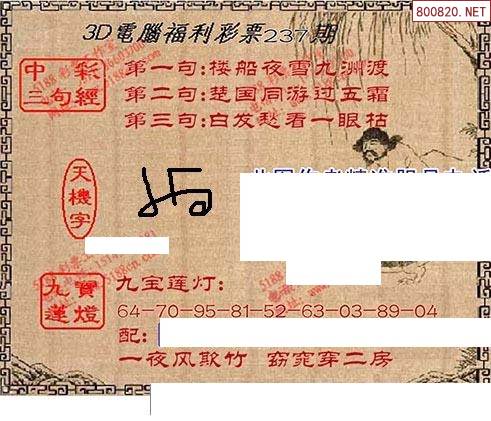 800820.NET
3D電腦福利彩票237期
中彩
三句經
第一句:楼船夜雪九洲渡
第二句:楚国同游过五霜
第三句:白发愁看一眼枯
天機字
九寶
蓮燈
九宝莲灯:
64-70-95-81-52-63-03-89-04
配:
一夜风欺竹 窈窕穿二房